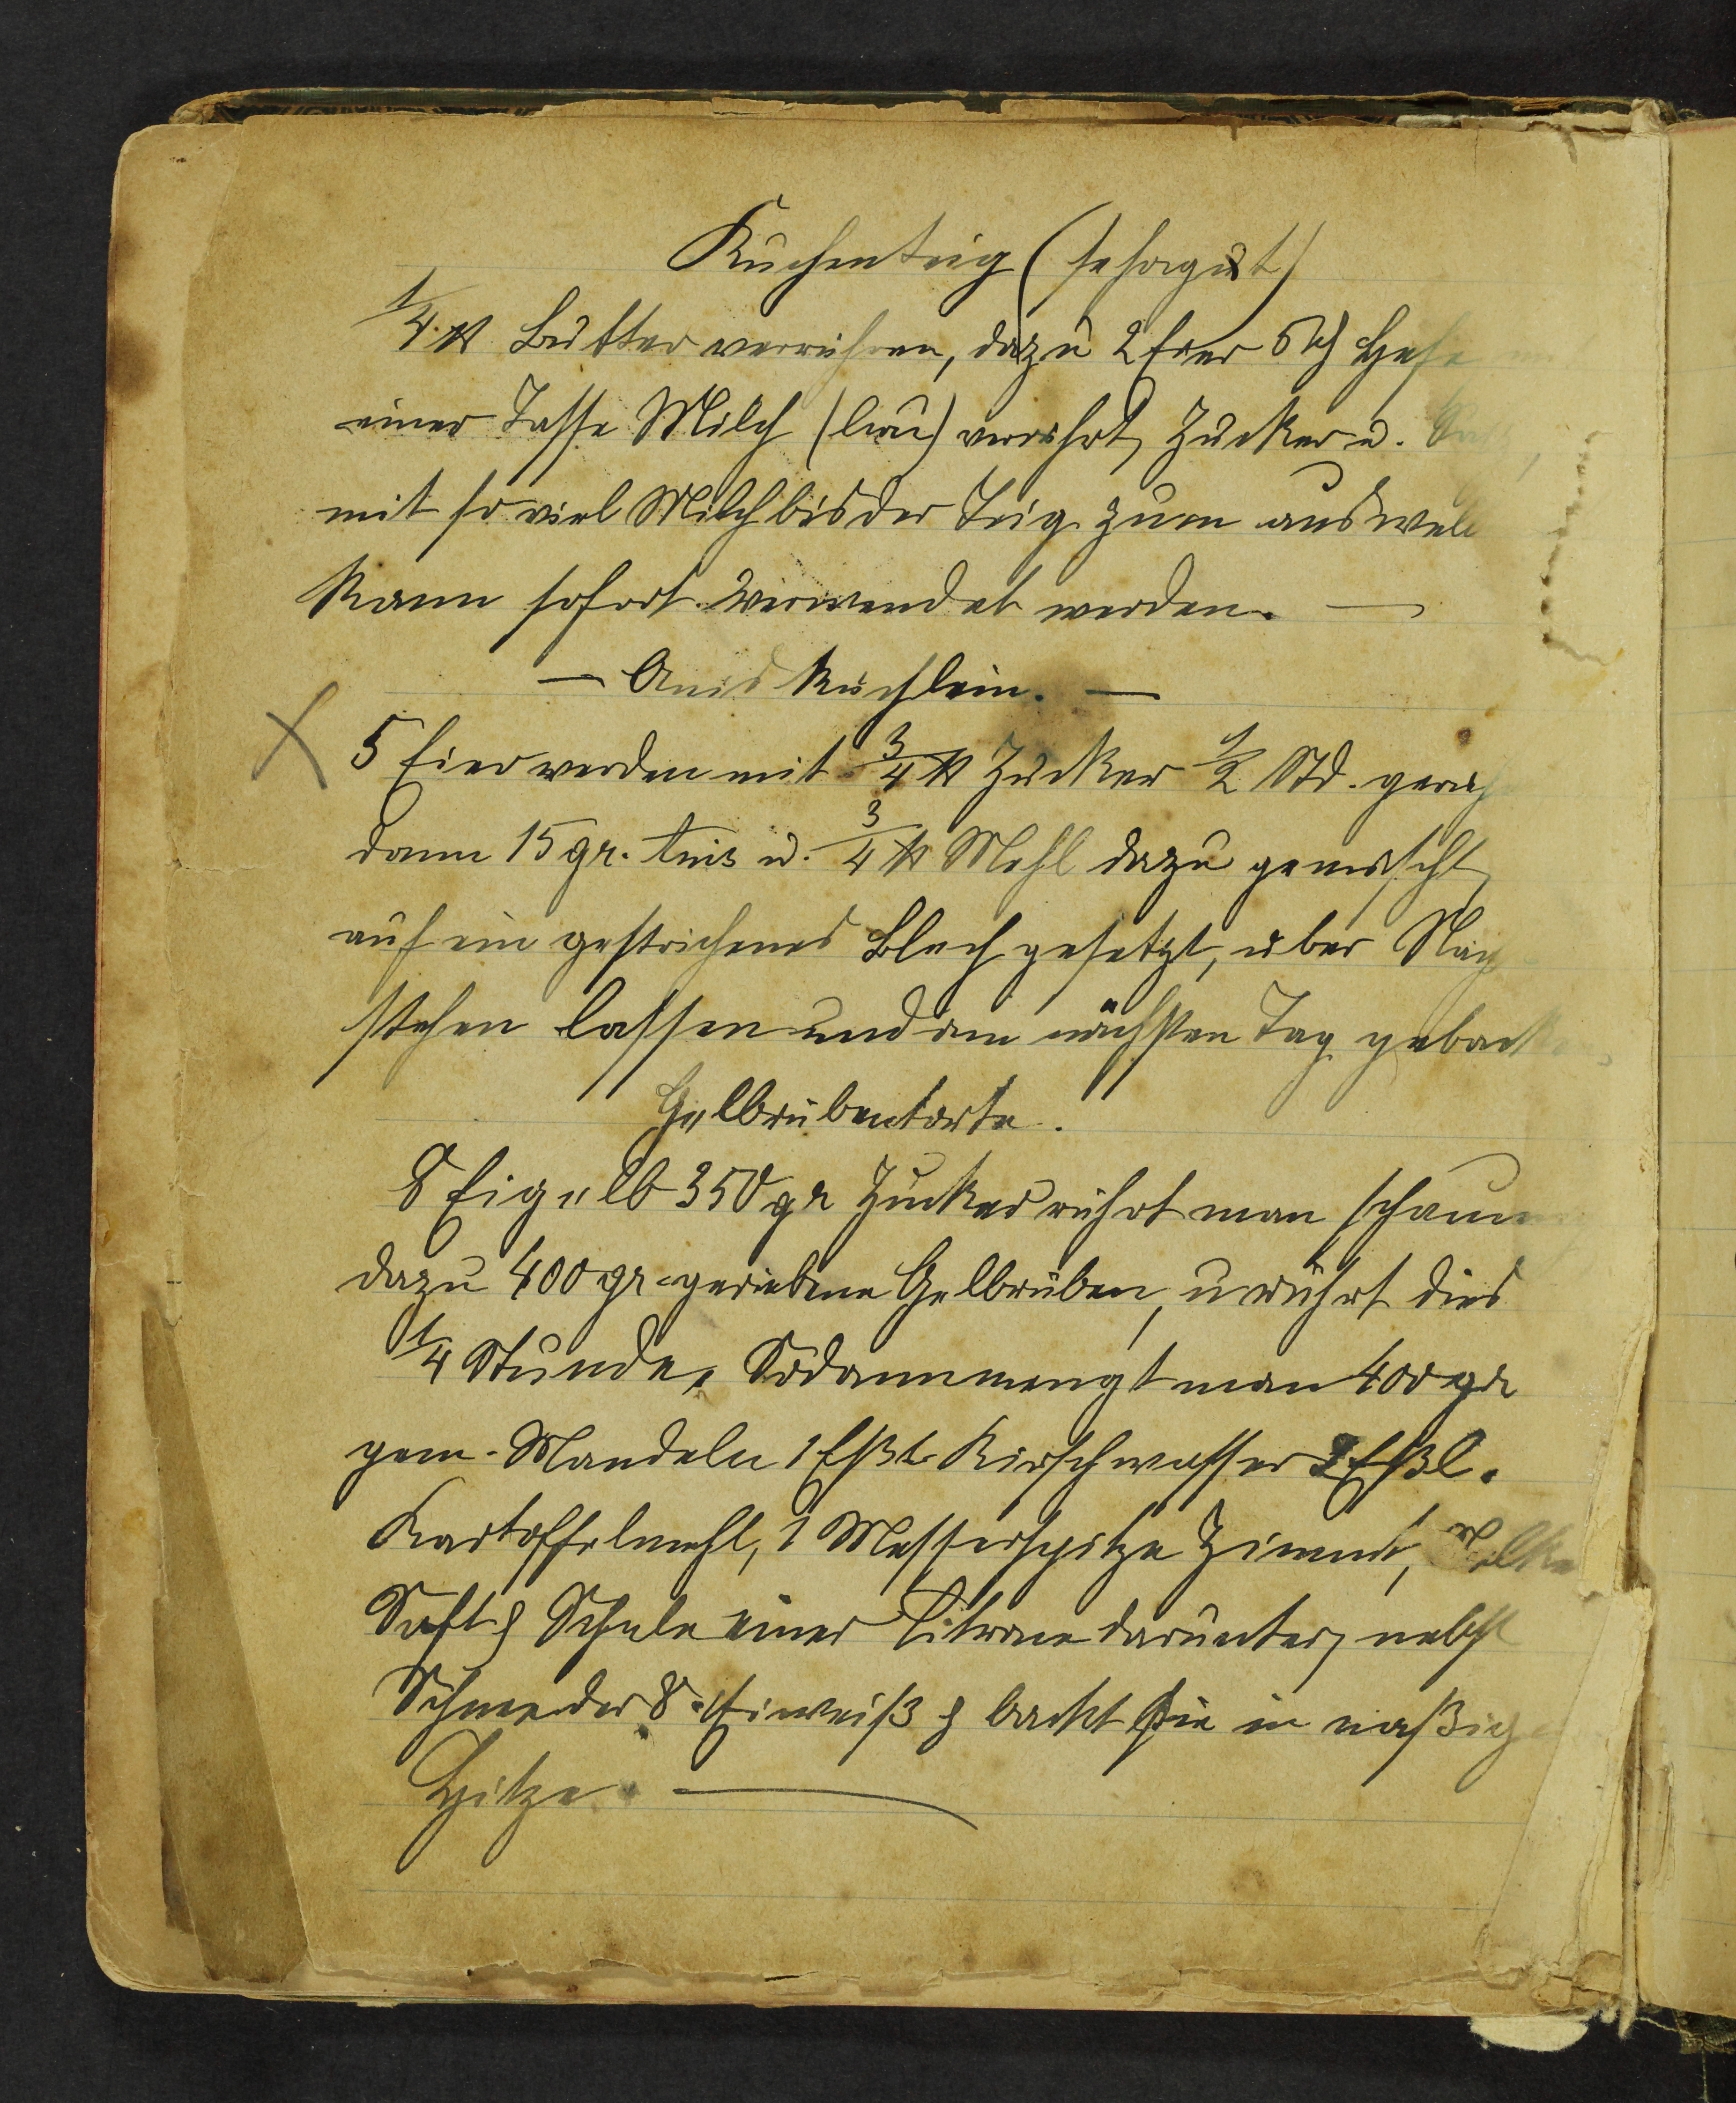 Kuchenteig (sehr gut)
1/4 ℔ Butter verrühren, dazu 2 Eier 5 ₰ Hefe
einer Tasse Milch (lau) verrührt, Zucker u.
mit so viel Milch bis der Teig zum auswell
kann sofort verwendet werden. —
— Anis Küchlein. —
5 Eier werden mit 3/4 ℔ Zucker 1/2 Std. gerüh
dann 15 gr. Anis u. 3/4 ℔ Mehl dazu gemischt,
auf ein gestrichenes Blech gesetzt, über Nach
stehen lassen und am nächsten Tag geback
Gelbrübentorte.
8 Eigelb 350 gr Zucker rührt man schaum
dazu 400 gr geriebene Gelbrüben, u rührt dies
1/4 Stunde. Sodann mengt man 400 gr
gem. Mandeln 1 Eßl. Kirschwasser 2 Eßl.
Kartoffelmehl, 1 Messerspitze Zimmt,
Saft & Schale einer Citrone darunter, nebst
Schnee der 8 Eiweiß & backt sie in mäßig
Hitze. —